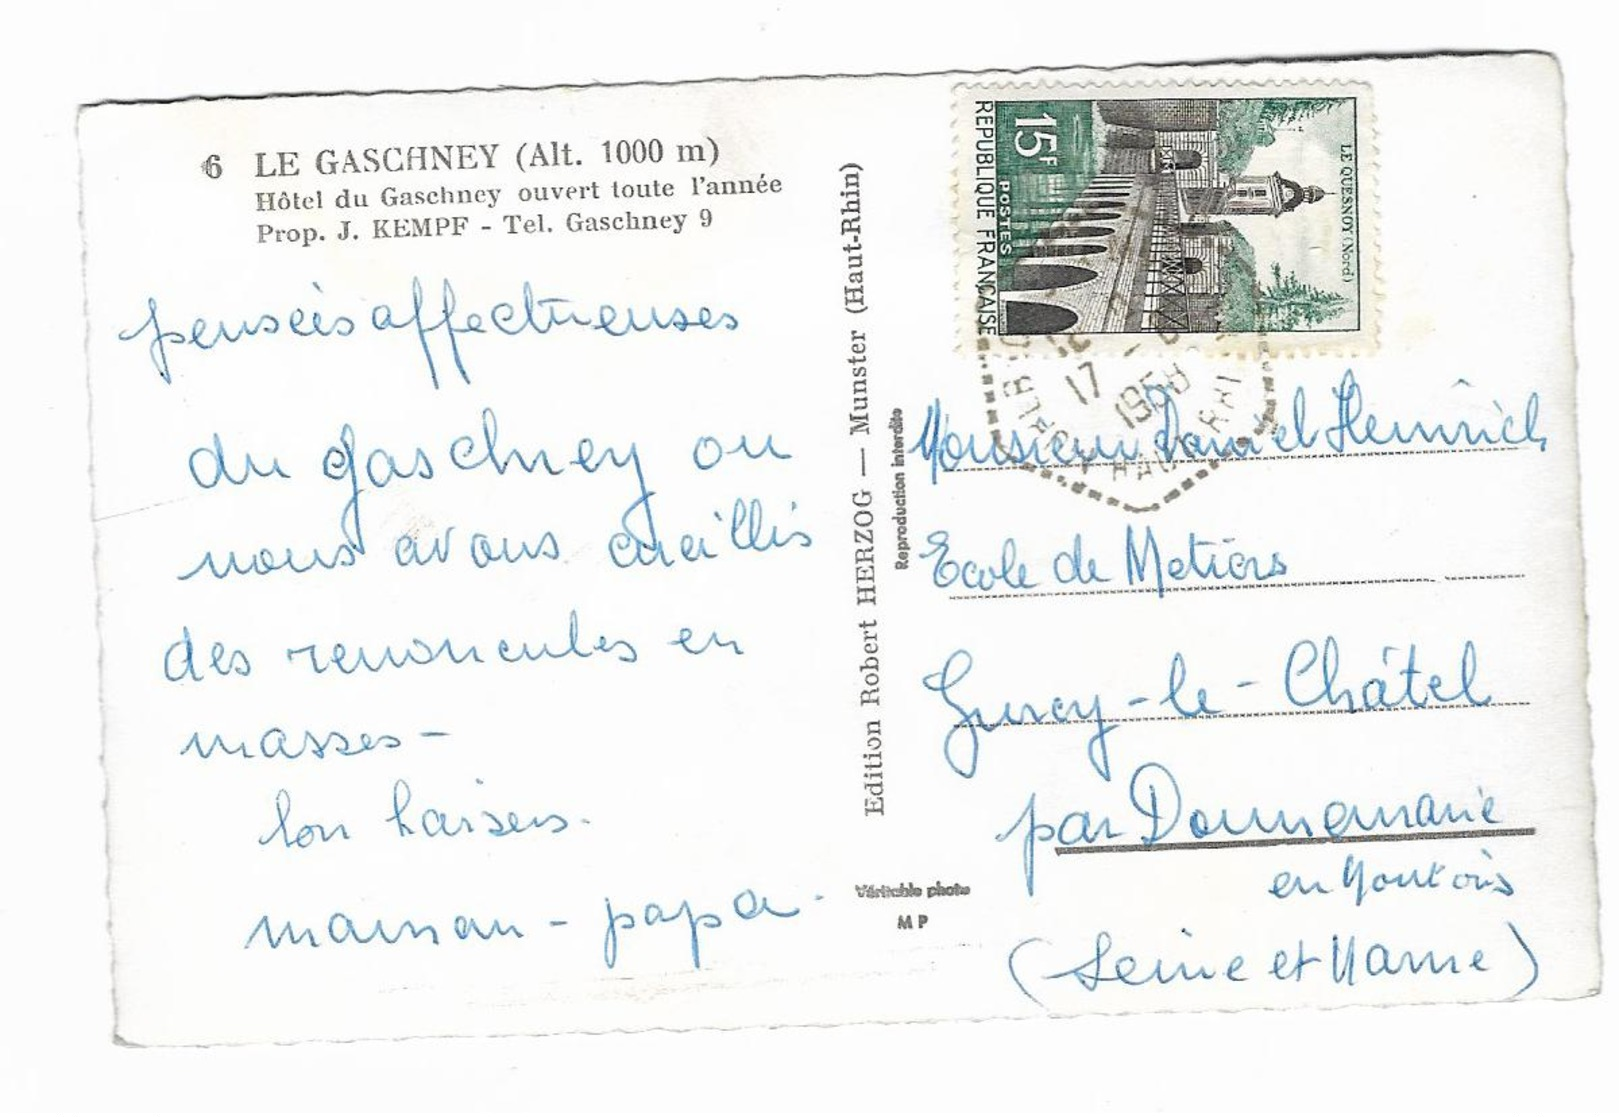 6 LE GASCHNEY (Alt. 1000 m)
Hôtel du Gaschney ouvert toute l'année
Prop. J. KEMPF - Tel. Gaschney 9
penseés affectueuses
du gaschney ou
nous avons cueillis
des renoncules en
masses -
bon baisers.
maman - papa.
Edition Robert HERZOG — Munster (Haut-Rhin)
Reproduction interdite
Véritable photo
M P
LE QUESNOY (Nord)
15F
POSTES
REPUBLIQUE FRANÇAISE
17
1958
HAUT RHIN
Monsieur Daniel Heinrich
Ecole de Metiers
Gurcy-le-Châtel
par Donnemarie
en Montois
(Seine et Marne)